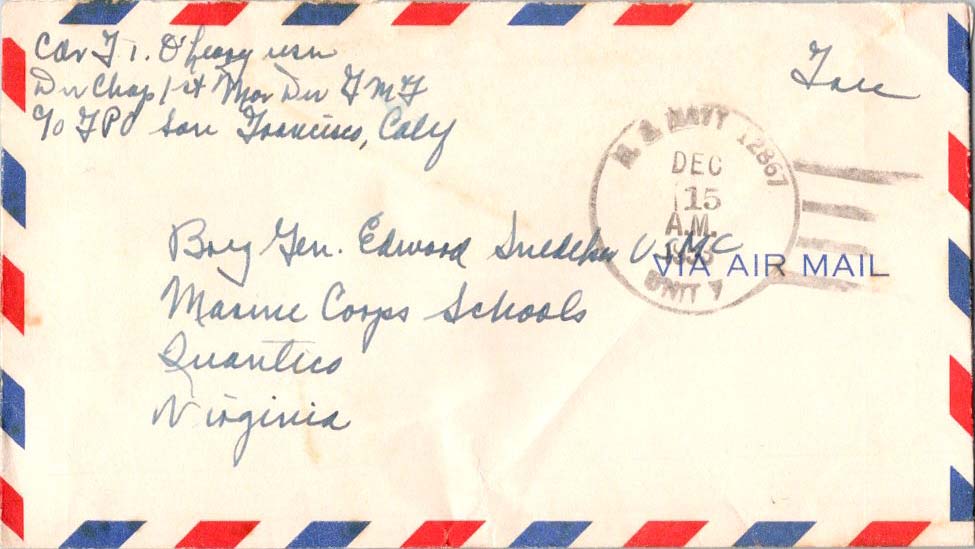 Cdr F. J. O'Leary USN
Div Chap 1st Mar Div FMF
c/o FPO San Francisco, Calif
Free
U. S. NAVY 12867
DEC
15
A.M.
UNIT 7
VIA AIR MAIL
Brig Gen. Edward Snedeker USMC
Marine Corps Schools
Quantico
Virginia